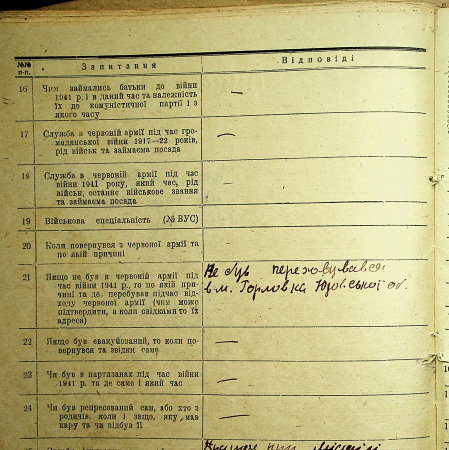 №№ п-п.
Запитання
Відповіді
16 Чим займались батьки до війни
1941 р. і в даний час та належність
їх до комуністичної партії і з
якого часу
—
17 Служба в червоній армії під час гро-
мадянської війни 1917—22 років,
рід військ та займаєма посада
—
18 Служба в червоній армії під час
війни 1941 року, який час, рід
військ, останнє військове звання
та займаєма посада
—
19 Військова спеціальність (№ ВУС)
20 Коли повернувся з червоної армії та
по якій причині
21 Якщо не був в червоній армії під
час війни 1941 р., то по якій при-
чині та де перебував підчас від-
ходу червоної армії (чим може
підтвердити, а коли свідками то їх
адреса)
Не був переховувався
в м. Горловка об.
22 Якщо був евакуйований, то коли по-
вернувся та звідки саме
—
23 Чи був в партизанах під час війни
1941 р. та де саме і який час
—
24 Чи був репресований сам, або хто з
родичів, коли і защо, яку мав
кару та чи відбув її
—